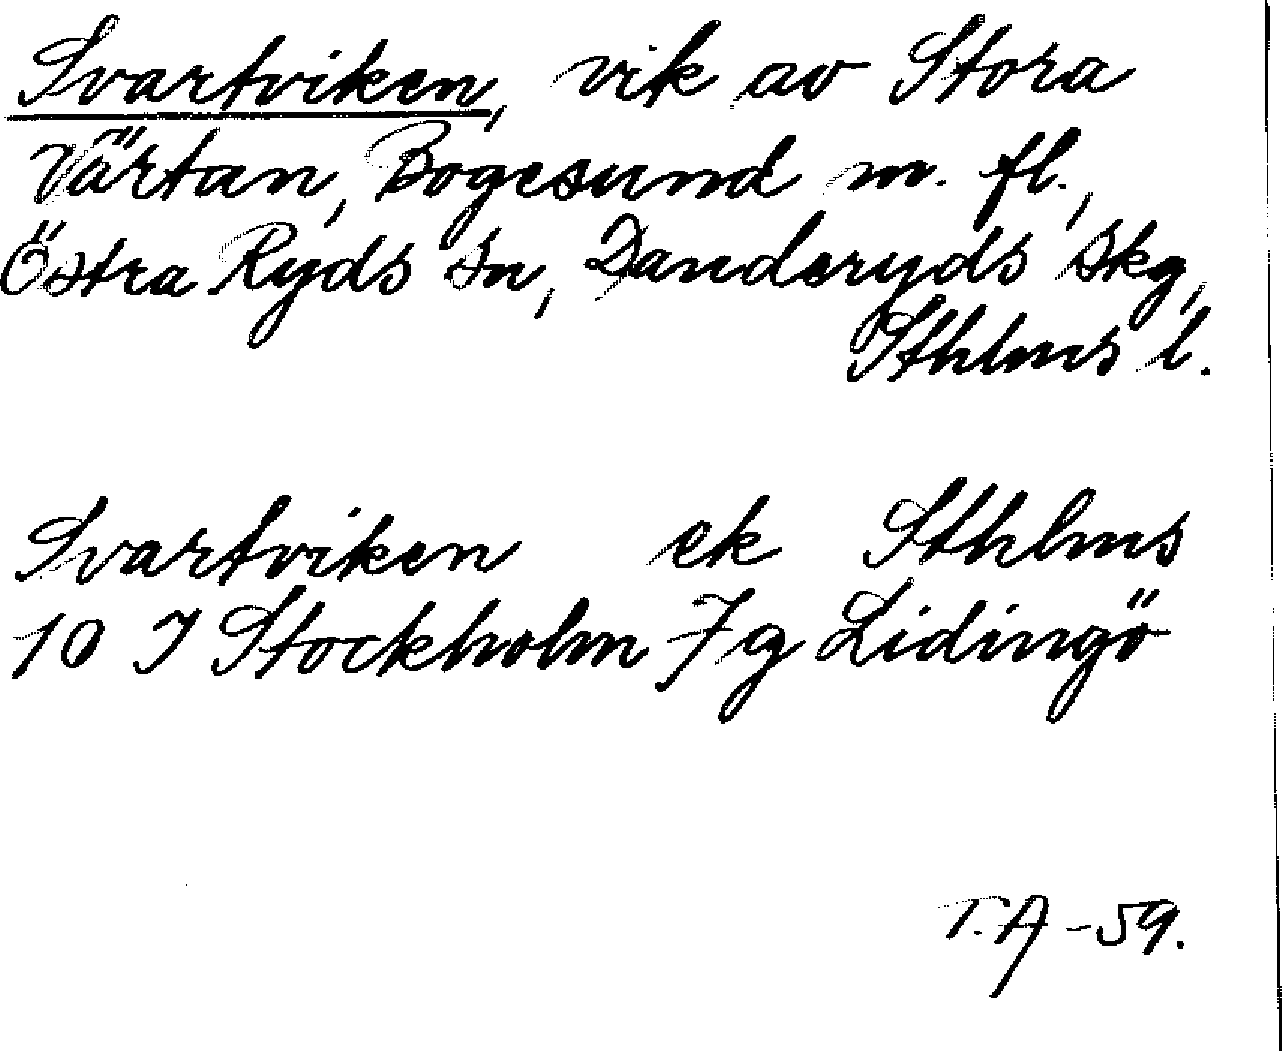 Svartviken, vik av Stora
Värtan, Bogesund m. fl.,
Östra Ryds sn, Danderyds skg,
Sthlms l.
Svartviken ek Sthlms
10 I Stockholm 7g Lidingö
T.A -59.